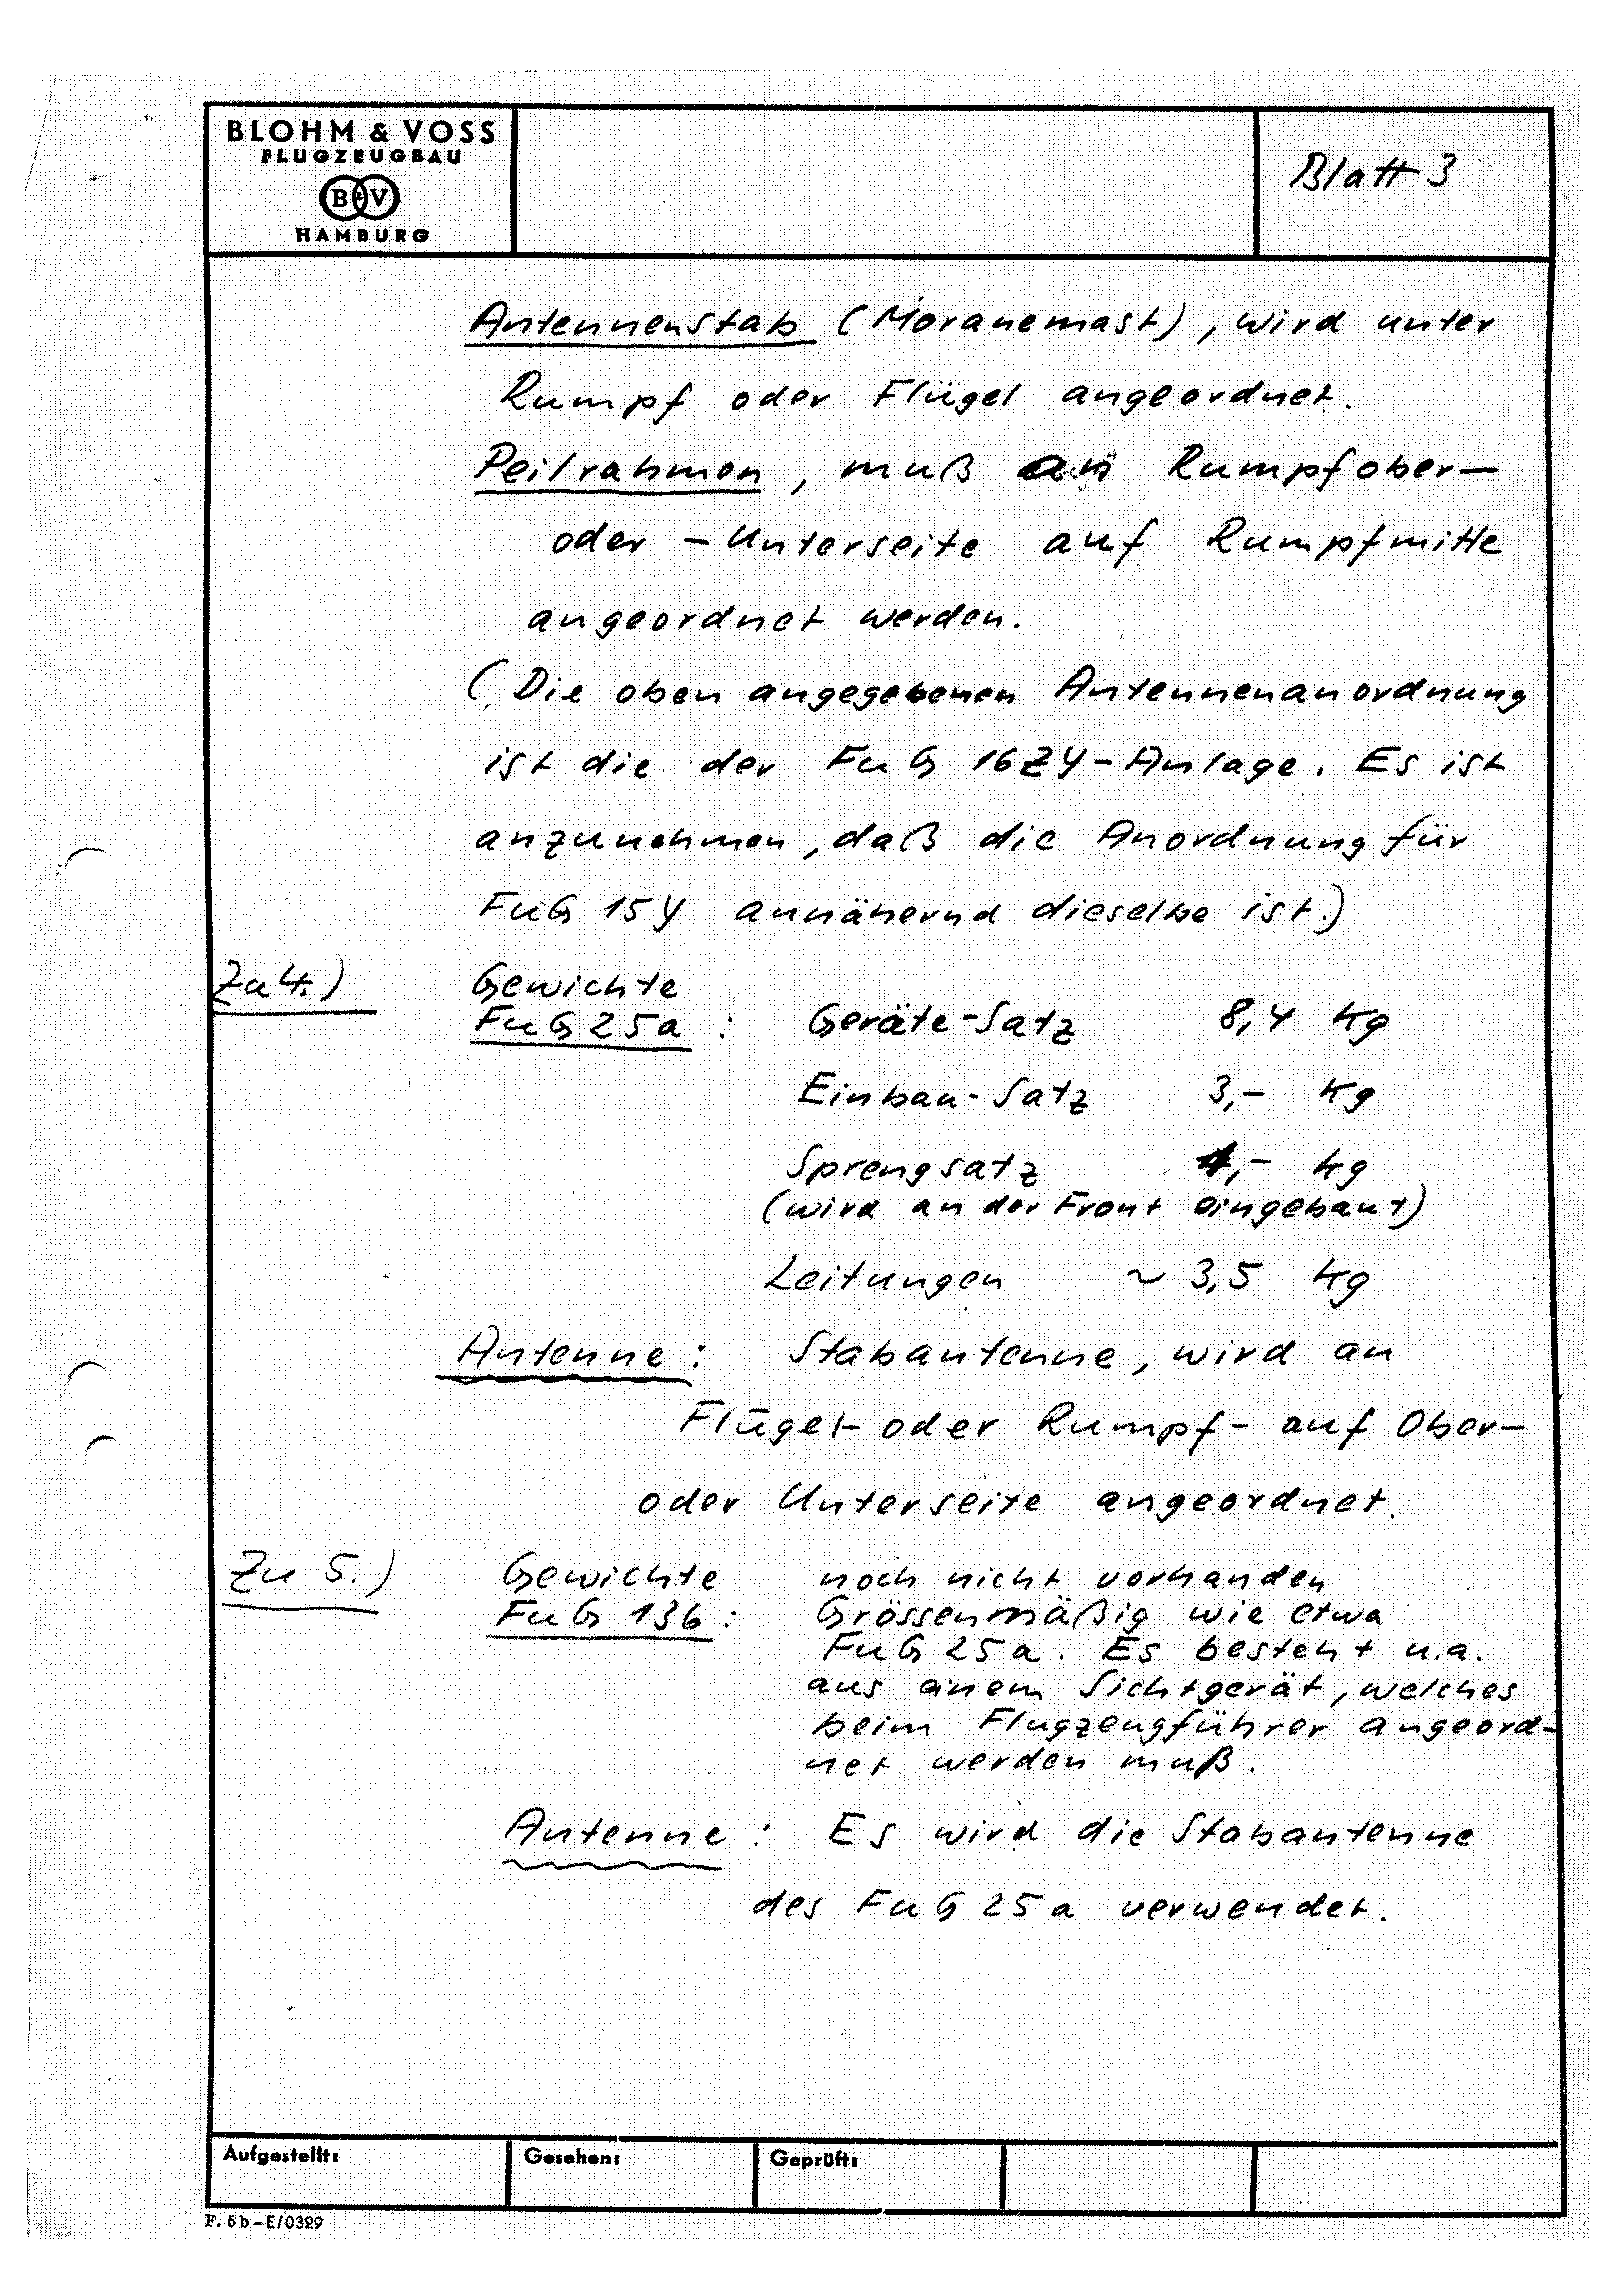 BLOHM & VOSS
FLUGZEUGBAU
B+V
HAMBURG
Blatt 3
Antennenstab (Moranemast), wird unter
Rumpf oder Flügel angeordnet.
Peilrahmen, muß an Rumpfober-
oder -Unterseite auf Rumpfmitte
angeordnet werden.
(Die oben angegebenen Antennenanordnung
ist die der FuG 16ZY-Anlage. Es ist
anzunehmen, daß die Anordnung für
FuG 15Y annähernd dieselbe ist.)
Zu 4.) Gewichte
FuG 25a : Geräte-Satz 8,4 kg
Einbau-Satz 3,- kg
Sprengsatz 4,- kg
(wird an der Front eingebaut)
Leitungen ~ 3,5 kg
Antenne: Stabantenne, wird an
Flügel- oder Rumpf- auf Ober-
oder Unterseite angeordnet.
Zu 5.) Gewichte noch nicht vorhanden
FuG 136: Grössenmäßig wie etwa
FuG 25a. Es besteht u.a.
aus einem Sichtgerät, welches
beim Flugzeugführer angeord-
net werden muß.
Antenne: Es wird die Stabantenne
des FuG 25a verwendet.
Aufgestellt: Gesehen: Geprüft:
F. 6b-E/0329